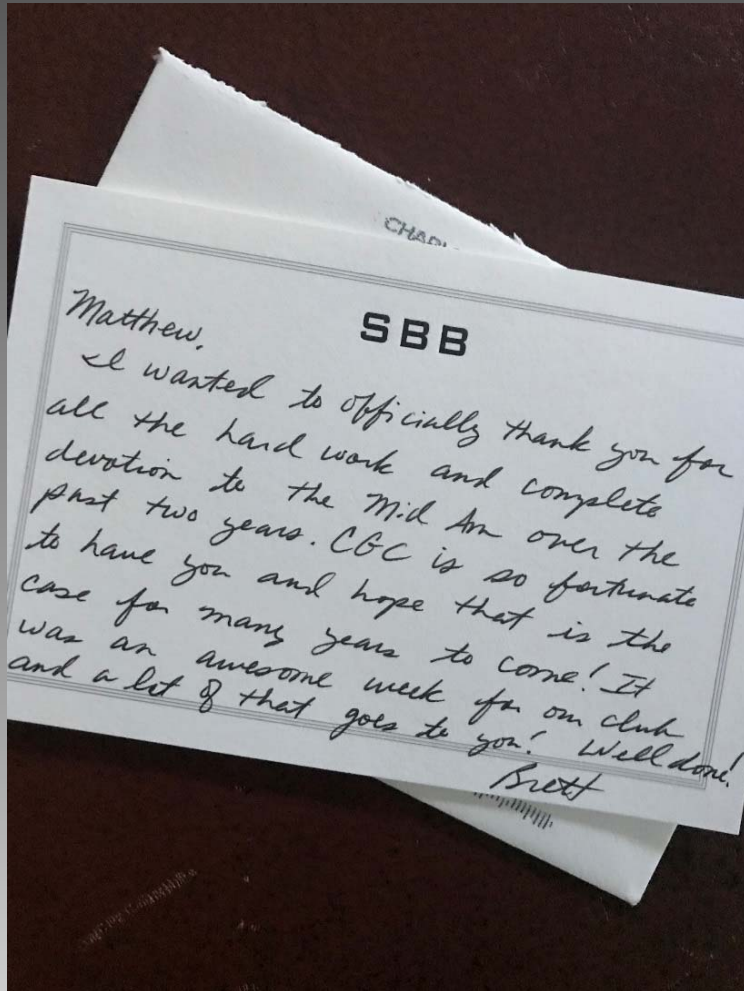 SBB
Matthew,
I wanted to officially thank you for
all the hard work and complete
devotion to the Mid Am over the
past two years. CGC is so fortunate
to have you and hope that is the
case for many years to come! It
was an awesome week for our club
and a lot of that goes to you! Well done!
Brett